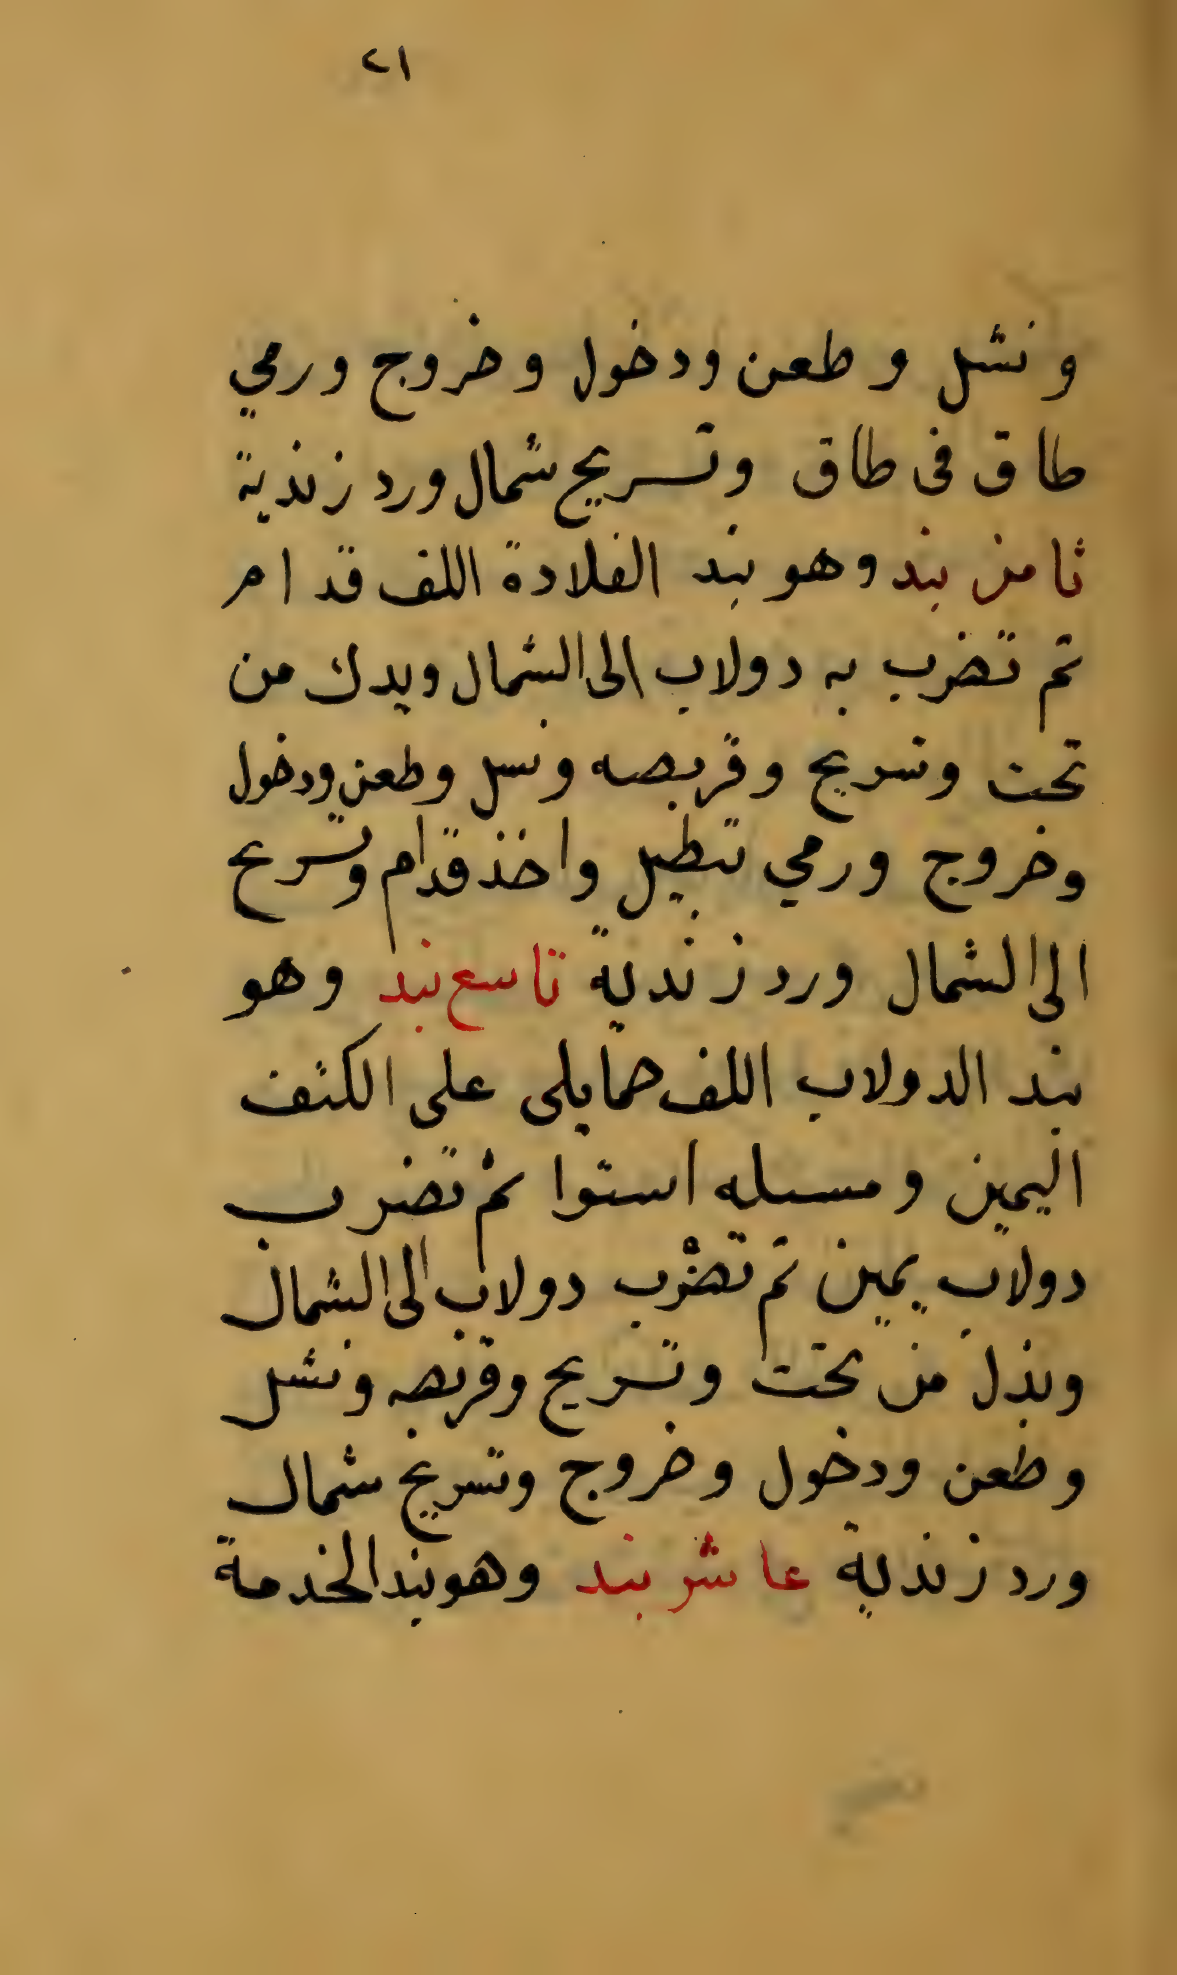 ٢١
ونشل وطعن ودخول وخروج ورمي
طاق فى طاق وتسريح شمال ورد زندية
ثامن بند وهو بند القلادة اللف قدام
ثم تضرب به دولاب الى الشمال ويدك من
تحت وتسريح وقربصه ونسل وطعن ودخول
وخروج ورمي تبطيل واخذ قدام وتسريح
الى الشمال ورد زندية تاسع بند وهو
بند الدولاب اللف حمايلى على الكتف
اليمين ومسبله استوا ثم تضرب
دولاب يمين ثم تضرب دولاب الى الشمال
وينزل من تحت وتسريح وقربصه ونشل
وطعن ودخول وخروج وتسريح شمال
ورد زندية عاشر بند وهو بند الخدمة